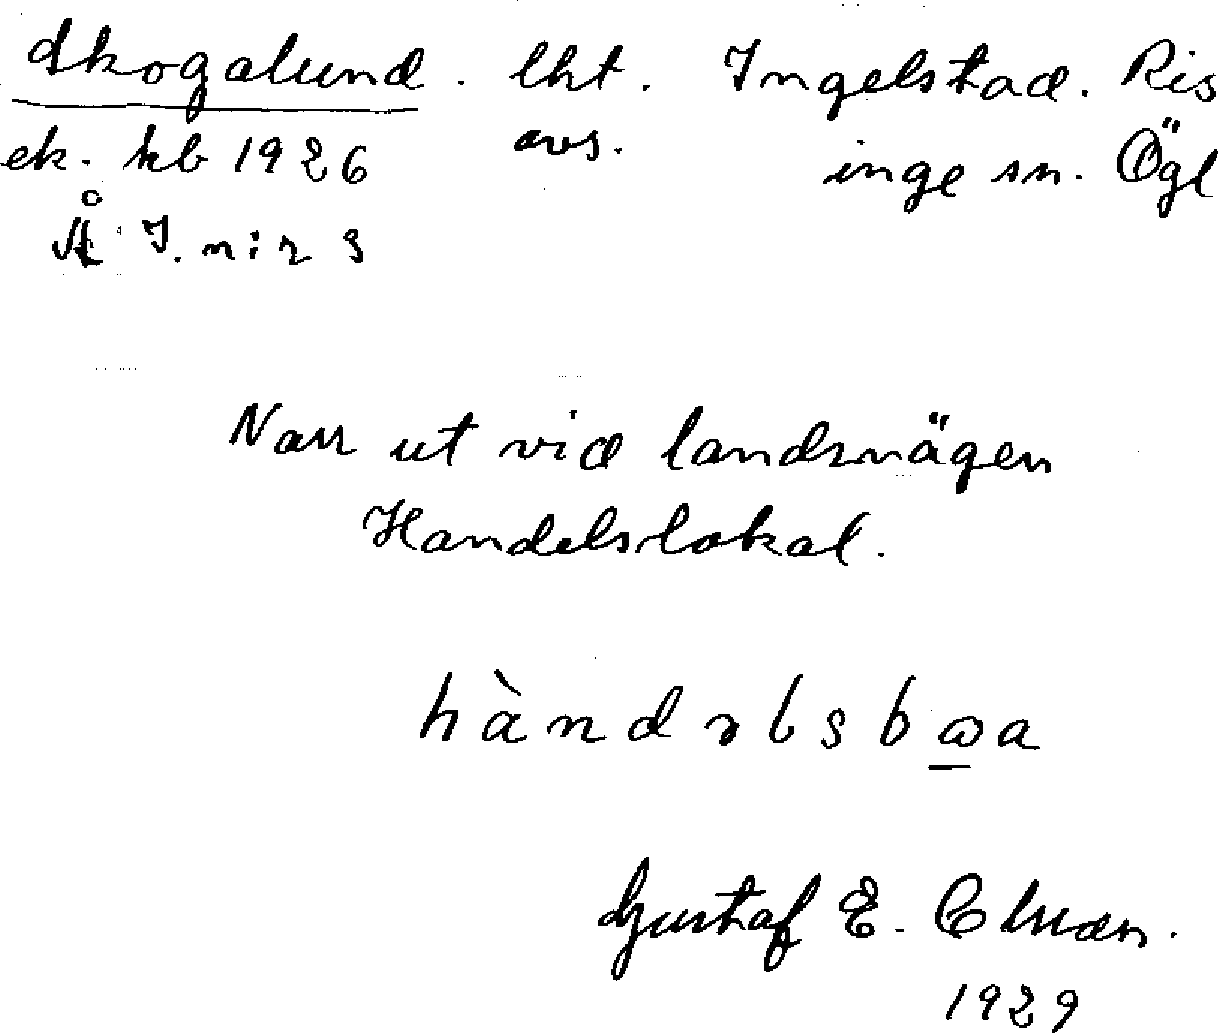 Skogalund. lht. Ingelstad. Ris
ek. kb 1926 avs. inge sn. Ögl
Å J. n:r 3
Narr ut vid landsvägen
Handelslokal.
hàndəlsbωa
Gustaf E.
1929